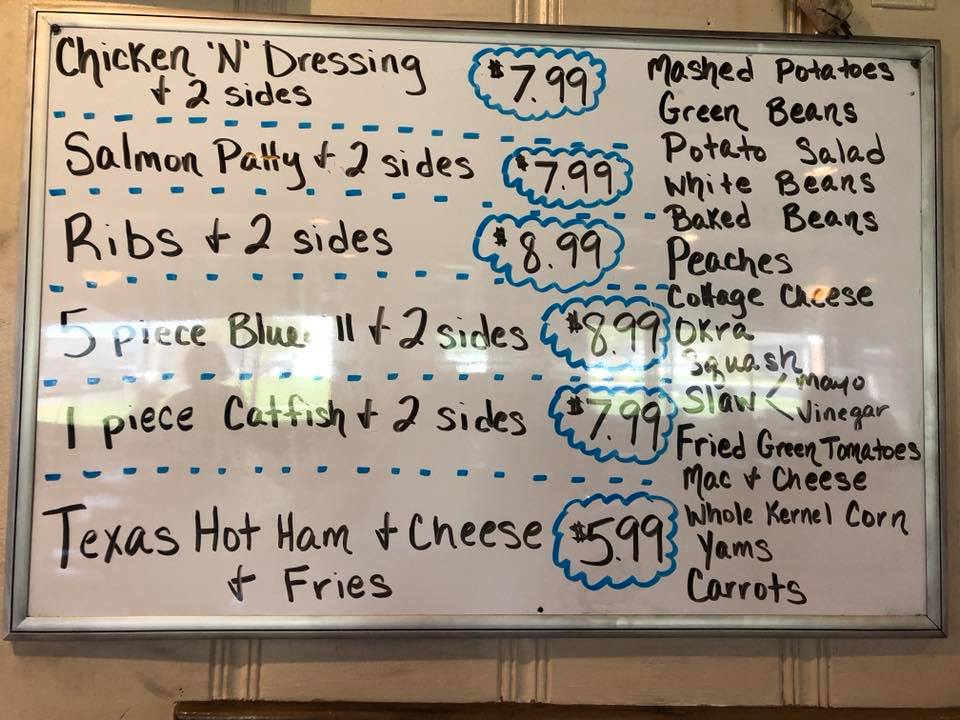 Chicken 'N' Dressing
+ 2 sides
$7.99
Salmon Patty + 2 sides
$7.99
Ribs + 2 sides
$8.99
5 piece Blue ll + 2 sides
$8.99
1 piece Catfish + 2 sides
$7.99
Texas Hot Ham + Cheese
+ Fries
$5.99
Mashed Potatoes
Green Beans
Potato Salad
White Beans
Baked Beans
Peaches
Cottage Cheese
Okra
Squash
Slaw < Mayo
Vinegar
Fried Green Tomatoes
Mac + Cheese
Whole Kernel Corn
Yams
Carrots